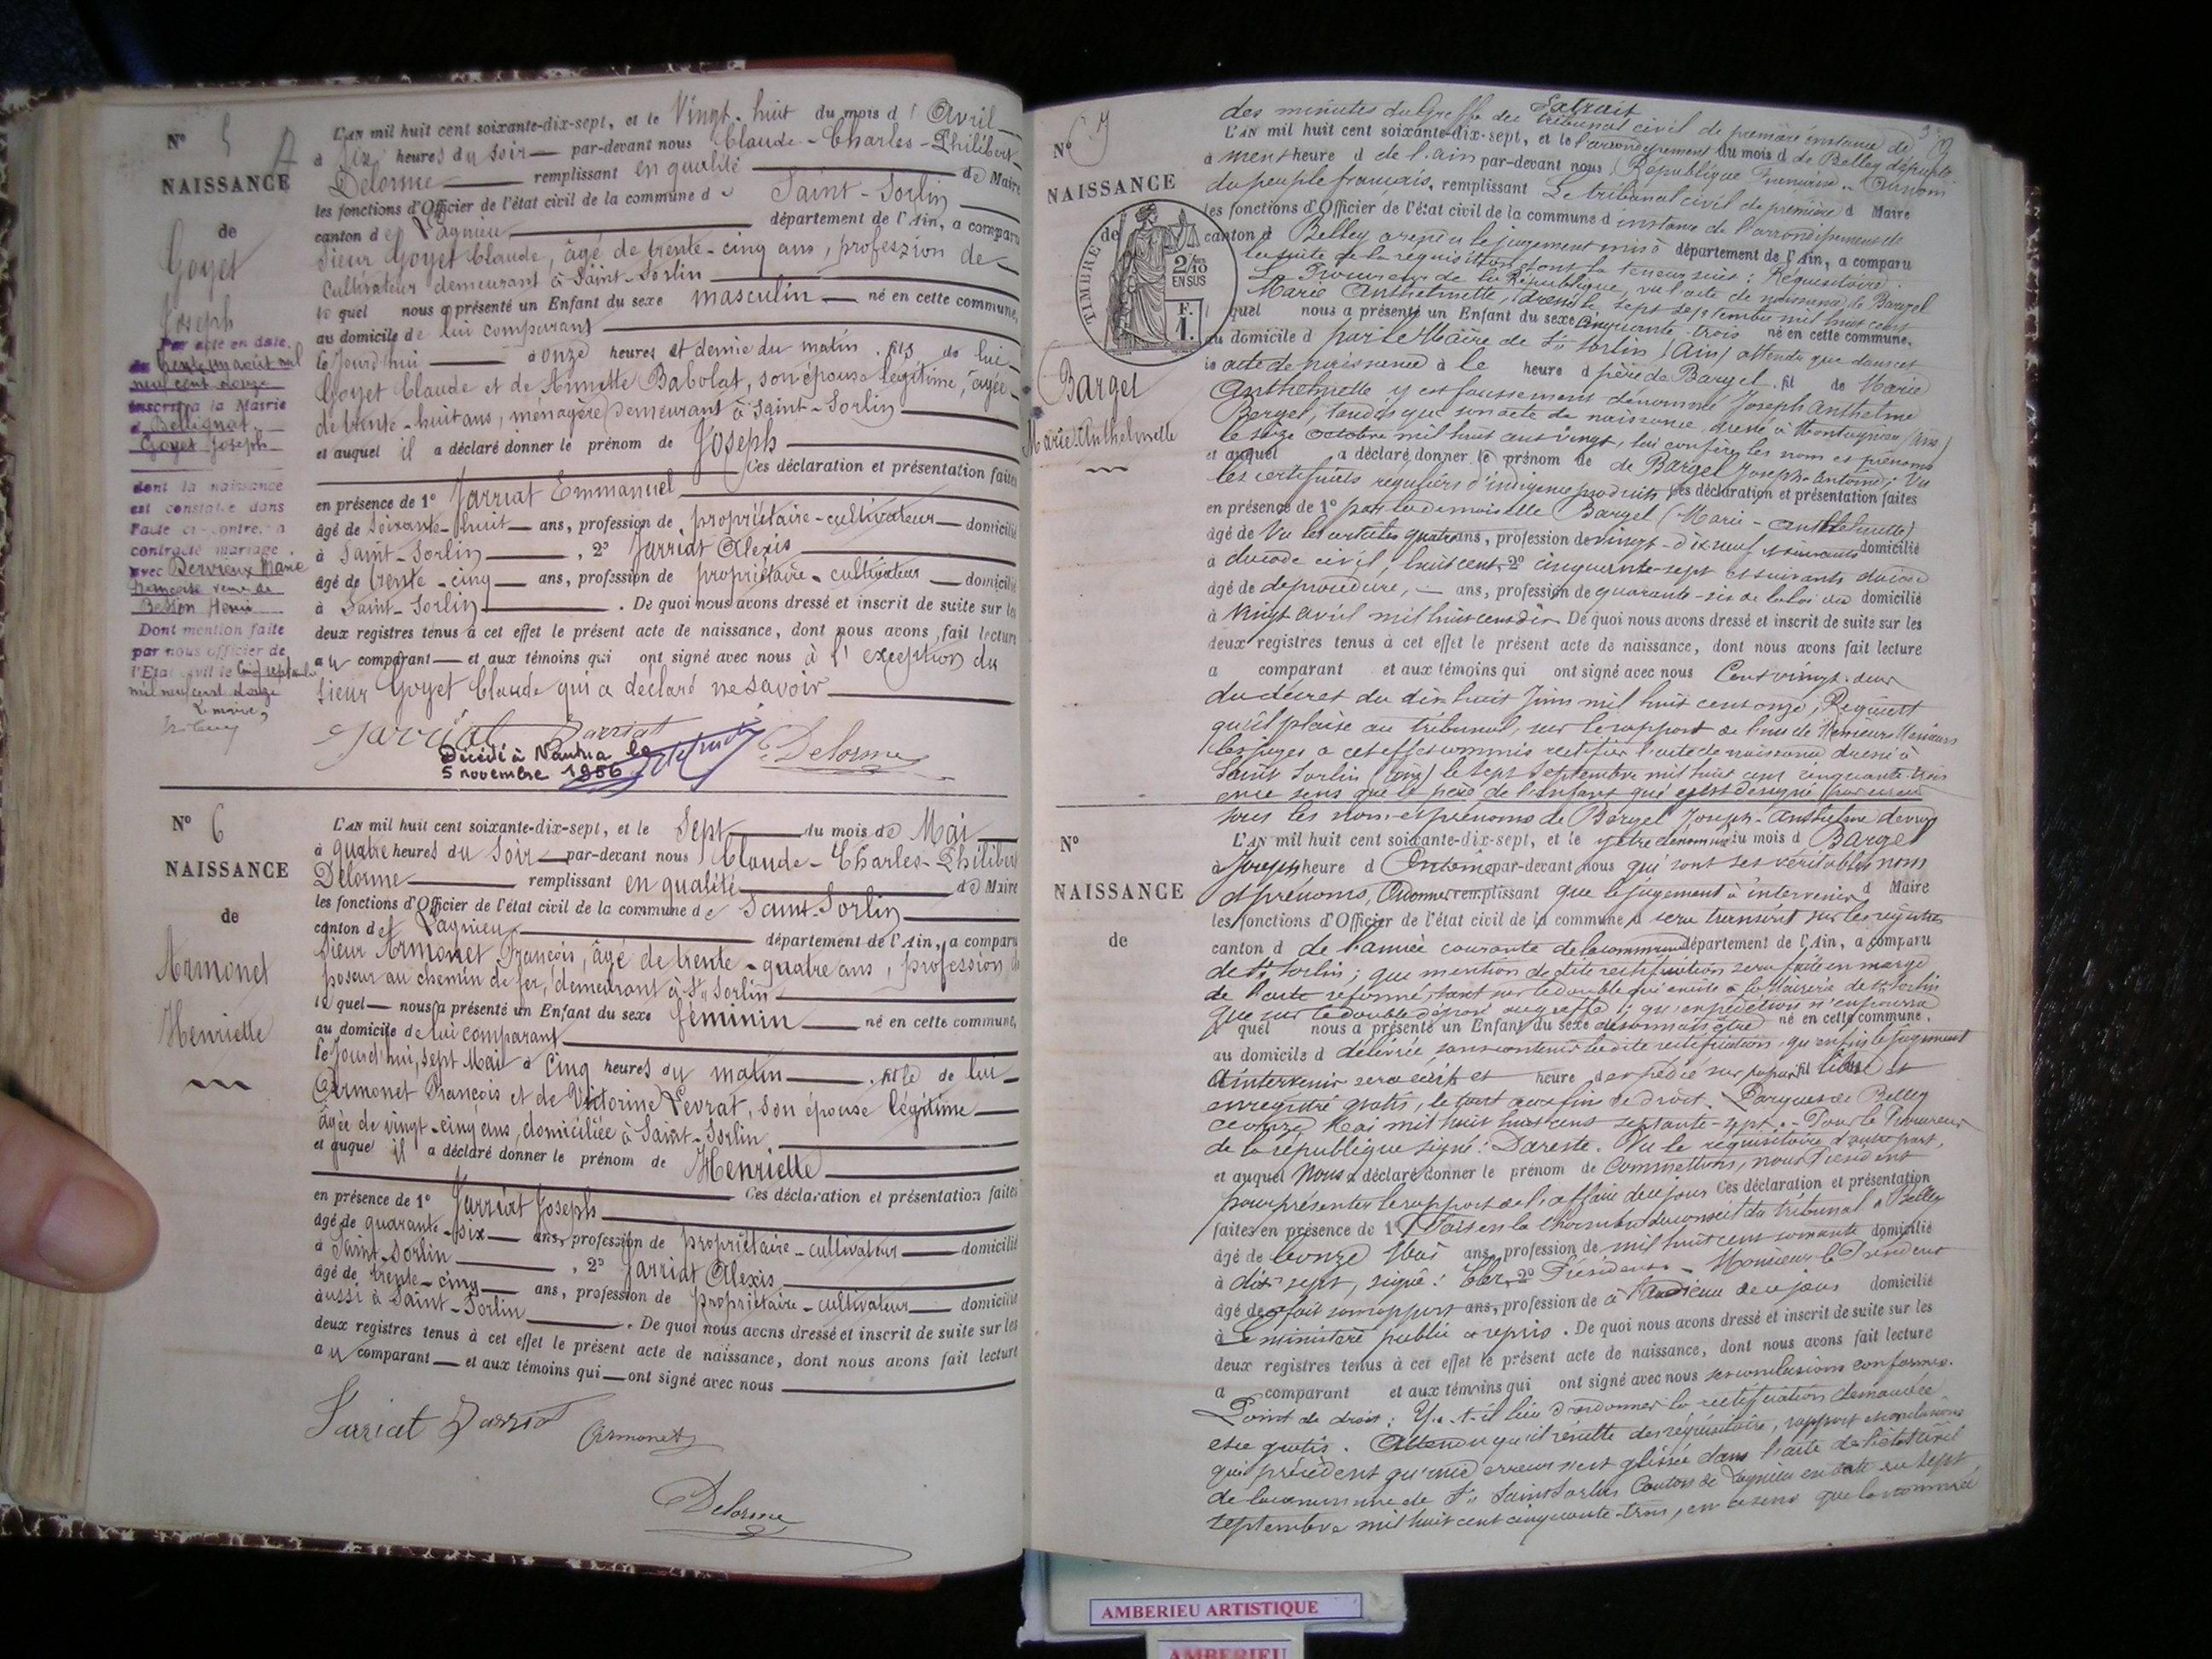 N° 5
NAISSANCE
de
Goyet
Joseph
Par acte en date,
du trente un août mil
neuf cent douze
inscrit à la Mairie
d Bellignat
Goyet Joseph
dont la naissance
est constatée dans
l'acte ci-contre, a
contracté mariage
avec Dervieux Marie
veuve de
Besson Henri
Dont mention faite
par nous officier de
l'Etat civil le cinq septembre
mil neuf cent douze
Le maire,
L'AN mil huit cent soixante-dix-sept, et le Vingt-huit du mois d' Avril
à six heures du soir par-devant nous Claude-Charles-Philibert
Delorme remplissant en qualité de Maire
les fonctions d'Officier de l'état civil de la commune de Saint-Sorlin
canton de Lagnieu département de l'Ain, a comparu
Sieur Goyet Claude, âgé de trente-cinq ans, profession de
cultivateur demeurant à Saint-Sorlin
le quel nous a présenté un Enfant du sexe masculin né en cette commune,
au domicile de lui comparant
le jourd'hui à onze heures et demie du matin. fils de lui
Goyet Claude et de Annette Babolat, son épouse légitime, âgée
de trente-huit ans, ménagère demeurant à Saint-Sorlin
et auquel il a déclaré donner le prénom de Joseph
Ces déclaration et présentation faites
en présence de 1° Jarriat Emmanuel
âgé de soixante-huit ans, profession de propriétaire-cultivateur domicilié
à Saint-Sorlin, 2° Jarriat Alexis
âgé de trente-cinq ans, profession de propriétaire-cultivateur domicilié
à Saint-Sorlin. De quoi nous avons dressé et inscrit de suite sur les
deux registres tenus à cet effet le présent acte de naissance, dont nous avons fait lecture
au comparant et aux témoins qui ont signé avec nous à l'exception du
sieur Goyet Claude qui a déclaré ne savoir
Jarriat Jarriat Delorme
Décédé à Nantua le
5 novembre 1956
N° 6
NAISSANCE
de
Armonet
Henriette
L'AN mil huit cent soixante-dix-sept, et le Sept du mois de Mai
à quatre heures du soir par-devant nous Claude-Charles-Philibert
Delorme remplissant en qualité de Maire
les fonctions d'Officier de l'état civil de la commune de Saint-Sorlin
canton de Lagnieu département de l'Ain, a comparu
Sieur Armonet François, âgé de trente-quatre ans, profession de
poseur au chemin de fer, demeurant à St Sorlin
le quel nous a présenté un Enfant du sexe féminin né en cette commune,
au domicile de lui comparant
le jourd'hui, sept Mai à cinq heures du matin. fille de lui
Armonet François et de Victorine Levrat, son épouse légitime
âgée de vingt-cinq ans, domiciliée à Saint-Sorlin
et auquel il a déclaré donner le prénom de Henriette
Ces déclaration et présentation faites
en présence de 1° Jarriat Joseph
âgé de quarante-six ans, profession de propriétaire-cultivateur domicilié
à Saint-Sorlin, 2° Jarriat Alexis
âgé de trente-cinq ans, profession de propriétaire-cultivateur domicilié
aussi à Saint-Sorlin. De quoi nous avons dressé et inscrit de suite sur les
deux registres tenus à cet effet le présent acte de naissance, dont nous avons fait lecture
au comparant et aux témoins qui ont signé avec nous
Jarriat Jarriat Armonet
Delorme
N° 7
NAISSANCE
de
TIMBRE
2/10
EN SUS
F.
1.
Bargel
Marie Anthelmette
Extrait
des minutes du Greffe du tribunal civil de première instance de
L'AN mil huit cent soixante-dix-sept, et le l'arrondissement du mois d de Belley départe
à ment heure d de l'ain par-devant nous République Française. Au nom
du peuple français, remplissant Le tribunal civil de première d Maire
les fonctions d'Officier de l'état civil de la commune d instance de l'arrondissement de
canton d Belley a rendu le jugement mis à département de l'Ain, a comparu
la suite de la réquisition dont la teneur suit : Réquisitoire
Le Procureur de la République, vu l'acte de naissance de Bargel
Marie Anthelmette, dressé le sept septembre mil huit cent
quel nous a présenté un Enfant du sexe cinquante-trois né en cette commune,
au domicile d par le Maire de St Sorlin (Ain) attendu que dans cet
le acte de naissance à le heure d père de Bargel. fil de Marie
Anthelmette y est faussement dénommé Joseph Anthelme
Bergel, tandis que son acte de naissance, dressé à Montagnieu (Ain)
le seize octobre mil huit cent vingt, lui confère les nom et prénoms
et auquel a déclaré donner le prénom de de Bargel Joseph-Antoine; Vu
les certificats réguliers d'indigence produits Ces déclaration et présentation faites
en présence de 1° par la demoiselle Bargel (Marie-Anthelmette)
âgé de Vu les articles quatre ans, profession de vingt-dix neuf et suivants domicilié
à du code civil, huit cent 2° cinquante-sept et suivants du code
âgé de de procédure, ans, profession de quarante-six de la loi du domicilié
à vingt avril mil huit cent dix De quoi nous avons dressé et inscrit de suite sur les
deux registres tenus à cet effet le présent acte de naissance, dont nous avons fait lecture
a comparant et aux témoins qui ont signé avec nous Cent vingt-deux
du décret du dix huit Juin mil huit cent onze, Requiert
qu'il plaise au tribunal, sur le rapport de l'un de Messieurs
les juges à cet effet commis rectifier l'acte de naissance dressé à
Saint Sorlin (Ain) le sept Septembre mil huit cent cinquante-trois
en ce sens que le père de l'enfant qui est désigné par erreur
sous les nom et prénoms de Bergel Joseph-Anthelme devra
N°
NAISSANCE
de
L'AN mil huit cent soixante-dix-sept, et le y être dénommé du mois d Bargel
à Joseph heure d Antoine par-devant nous qui sont ses véritables nom
et prénoms, Ordonner remplissant que le jugement à intervenir d Maire
les fonctions d'Officier de l'état civil de la commune d sera transcrit sur les registres
canton d de l'année courante de la commune département de l'Ain, a comparu
de St Sorlin; que mention de dite rectification sera faite en marge
de l'acte réformé, tant sur le double qui existe à la Mairie de St Sorlin
que sur le double déposé au greffe; qu'expédition n'en pourra
quel nous a présenté un Enfant du sexe désormais être né en cette commune,
au domicile d délivrée sans contenir ladite rectification, qu'enfin le jugement
à intervenir sera écrit et heure d expédié sur papier fil libre et
enregistré gratis, le tout aux fins de droit. Parquet de Belley
ce onze Mai mil huit huit cent septante-sept. Pour le Procureur
de la république signé: Dareste. Vu le réquisitoire d'autre part,
et auquel Nous a déclaré donner le prénom de Commettons, nous Président
pour présenter le rapport de l'affaire de ce jour Ces déclaration et présentation
faites en présence de 1° Fait en la chambre du conseil du tribunal à Belley
âgé de le onze Mai ans, profession de mil huit cent soixante domicilié
à dix-sept, signé: 2° Président. Monsieur le Président
âgé de a fait son rapport ans, profession de à l'audience de ce jour domicilié
à Le ministère public a repris. De quoi nous avons dressé et inscrit de suite sur les
deux registres tenus à cet effet le présent acte de naissance, dont nous avons fait lecture
a comparant et aux témoins qui ont signé avec nous ses conclusions conformes.
Point de droit: Y a-t-il lieu d'ordonner la rectification demandée
et ce gratis. Attendu qu'il résulte des réquisitoire, rapport et conclusions
qui précèdent qu'une erreur s'est glissée dans l'acte de l'état civil
de la commune de St Saint Sorlin Canton de Lagnieu en date du sept
septembre mil huit cent cinquante-trois, en ce sens que la nommée
AMBERIEU ARTISTIQUE
AMBERIEU